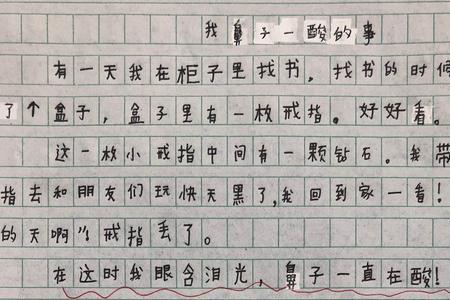 我鼻子一酸的事
有一天我在柜子里找书，找书的时候
了个盒子，盒子里有一枚戒指。好好看。
这一枚小戒指中间有一颗钻石。我带
指去和朋友们玩快天黑了，我回到家一看！
的天啊”！戒指丢了。
在这时我眼含泪光，鼻子一直在酸！